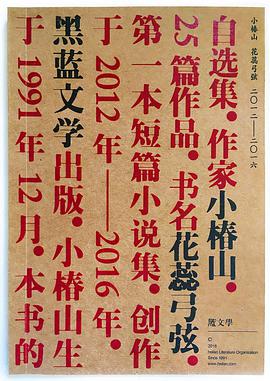 小椿山 花蕊弓弦 二〇一二——二〇一六
自选集。作家小椿山。
25 篇作品。书名花蕊弓弦。
第一本短篇小说集。创作
于 2012 年——2016 年。
黑蓝文学出版。小椿山生
于 1991 年 12 月。本书的
文學
©
2016
heilan Literature Organisation
Since 1991
www.heilan.com